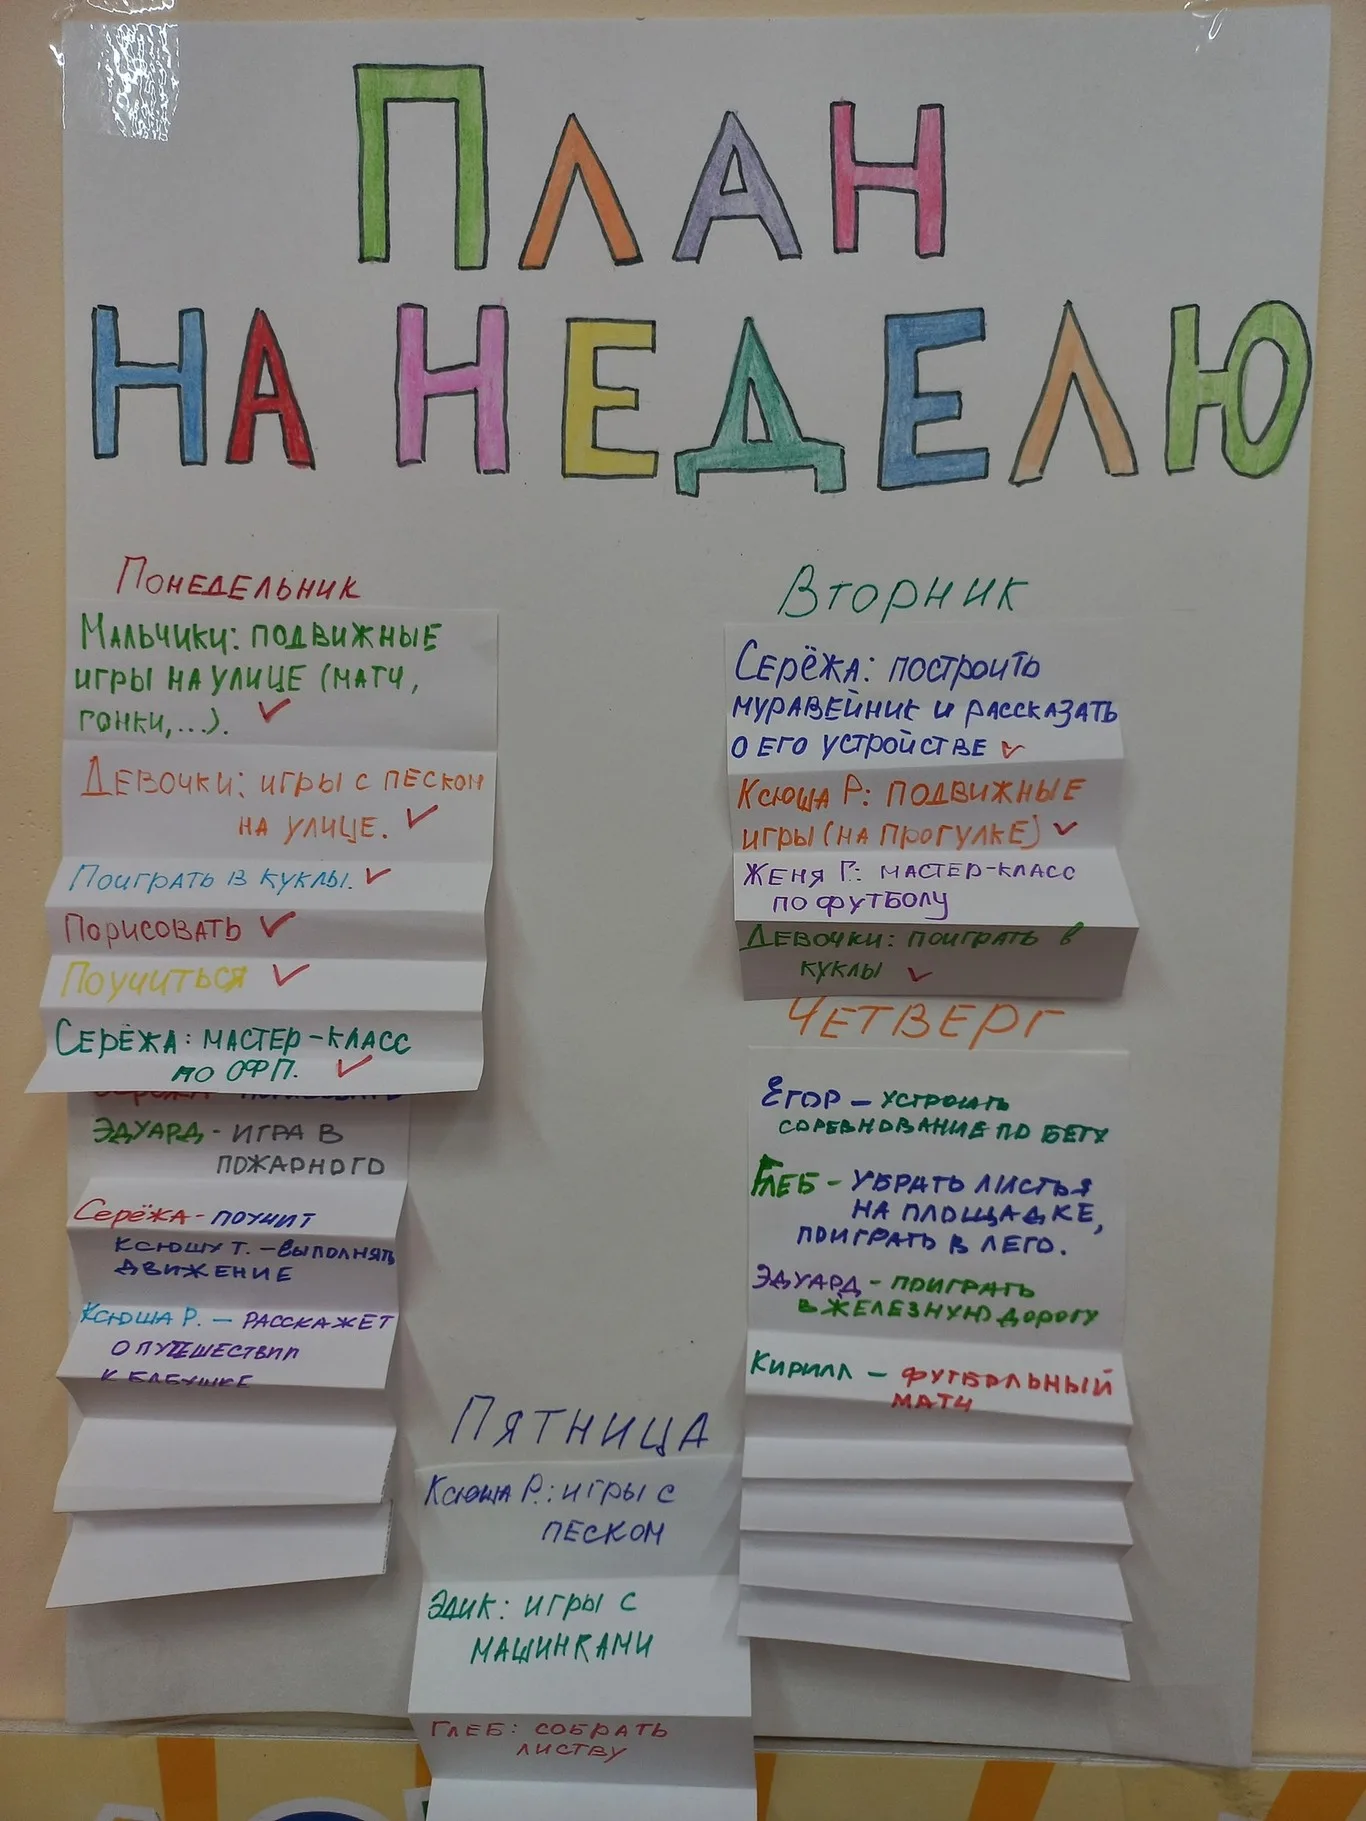 ПЛАН
НА НЕДЕЛЮ
ПОНЕДЕЛЬНИК
МАЛЬЧИКИ: ПОДВИЖНЫЕ
ИГРЫ НА УЛИЦЕ (МАТЧ,
ГОНКИ,...).
ДЕВОЧКИ: ИГРЫ С ПЕСКОМ
НА УЛИЦЕ.
ПОИГРАТЬ В КУКЛЫ.
ПОРИСОВАТЬ
ПОУЧИТЬСЯ
СЕРЁЖА: МАСТЕР-КЛАСС
ПО ОФП.
ЭДУАРД - ИГРА В
ПОЖАРНОГО
СЕРЁЖА - ПОУЧИТ
КСЮШУ Т. - ВЫПОЛНЯТЬ
ДВИЖЕНИЕ
КСЮША Р. - РАССКАЖЕТ
О ПУТЕШЕСТВИИ
К БАБУШКЕ
ВТОРНИК
СЕРЁЖА: ПОСТРОИТЬ
МУРАВЕЙНИК И РАССКАЗАТЬ
О ЕГО УСТРОЙСТВЕ
КСЮША Р: ПОДВИЖНЫЕ
ИГРЫ (НА ПРОГУЛКЕ)
ЖЕНЯ Г: МАСТЕР-КЛАСС
ПО ФУТБОЛУ
ДЕВОЧКИ: ПОИГРАТЬ В
КУКЛЫ
ЧЕТВЕРГ
ЕГОР - УСТРОИТЬ
СОРЕВНОВАНИЕ ПО БЕГУ
ГЛЕБ - УБРАТЬ ЛИСТЬЯ
НА ПЛОЩАДКЕ,
ПОИГРАТЬ В ЛЕГО.
ЭДУАРД - ПОИГРАТЬ
В ЖЕЛЕЗНУЮ ДОРОГУ
КИРИЛЛ - ФУТБОЛЬНЫЙ
МАТЧ
ПЯТНИЦА
КСЮША Р.: ИГРЫ С
ПЕСКОМ
ЭДИК: ИГРЫ С
МАШИНКАМИ
ГЛЕБ: СОБРАТЬ
ЛИСТВУ